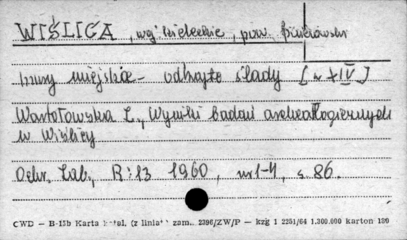 WIŚLICA, wg. kieleckie, pow. pińczowski
mury miejskie - odkryte ślady [w XIV]
Wartołowska Z., Wyniki badań archeologicznych
w Wiślicy
Ochr. Zab., R: 13 1960, nr 1-4, s. 86.
CWD - B-15b Karta katal. (z liniat) zam. 2396/ZW/P - kzg 1 2251/64 1.300.000 karton 180